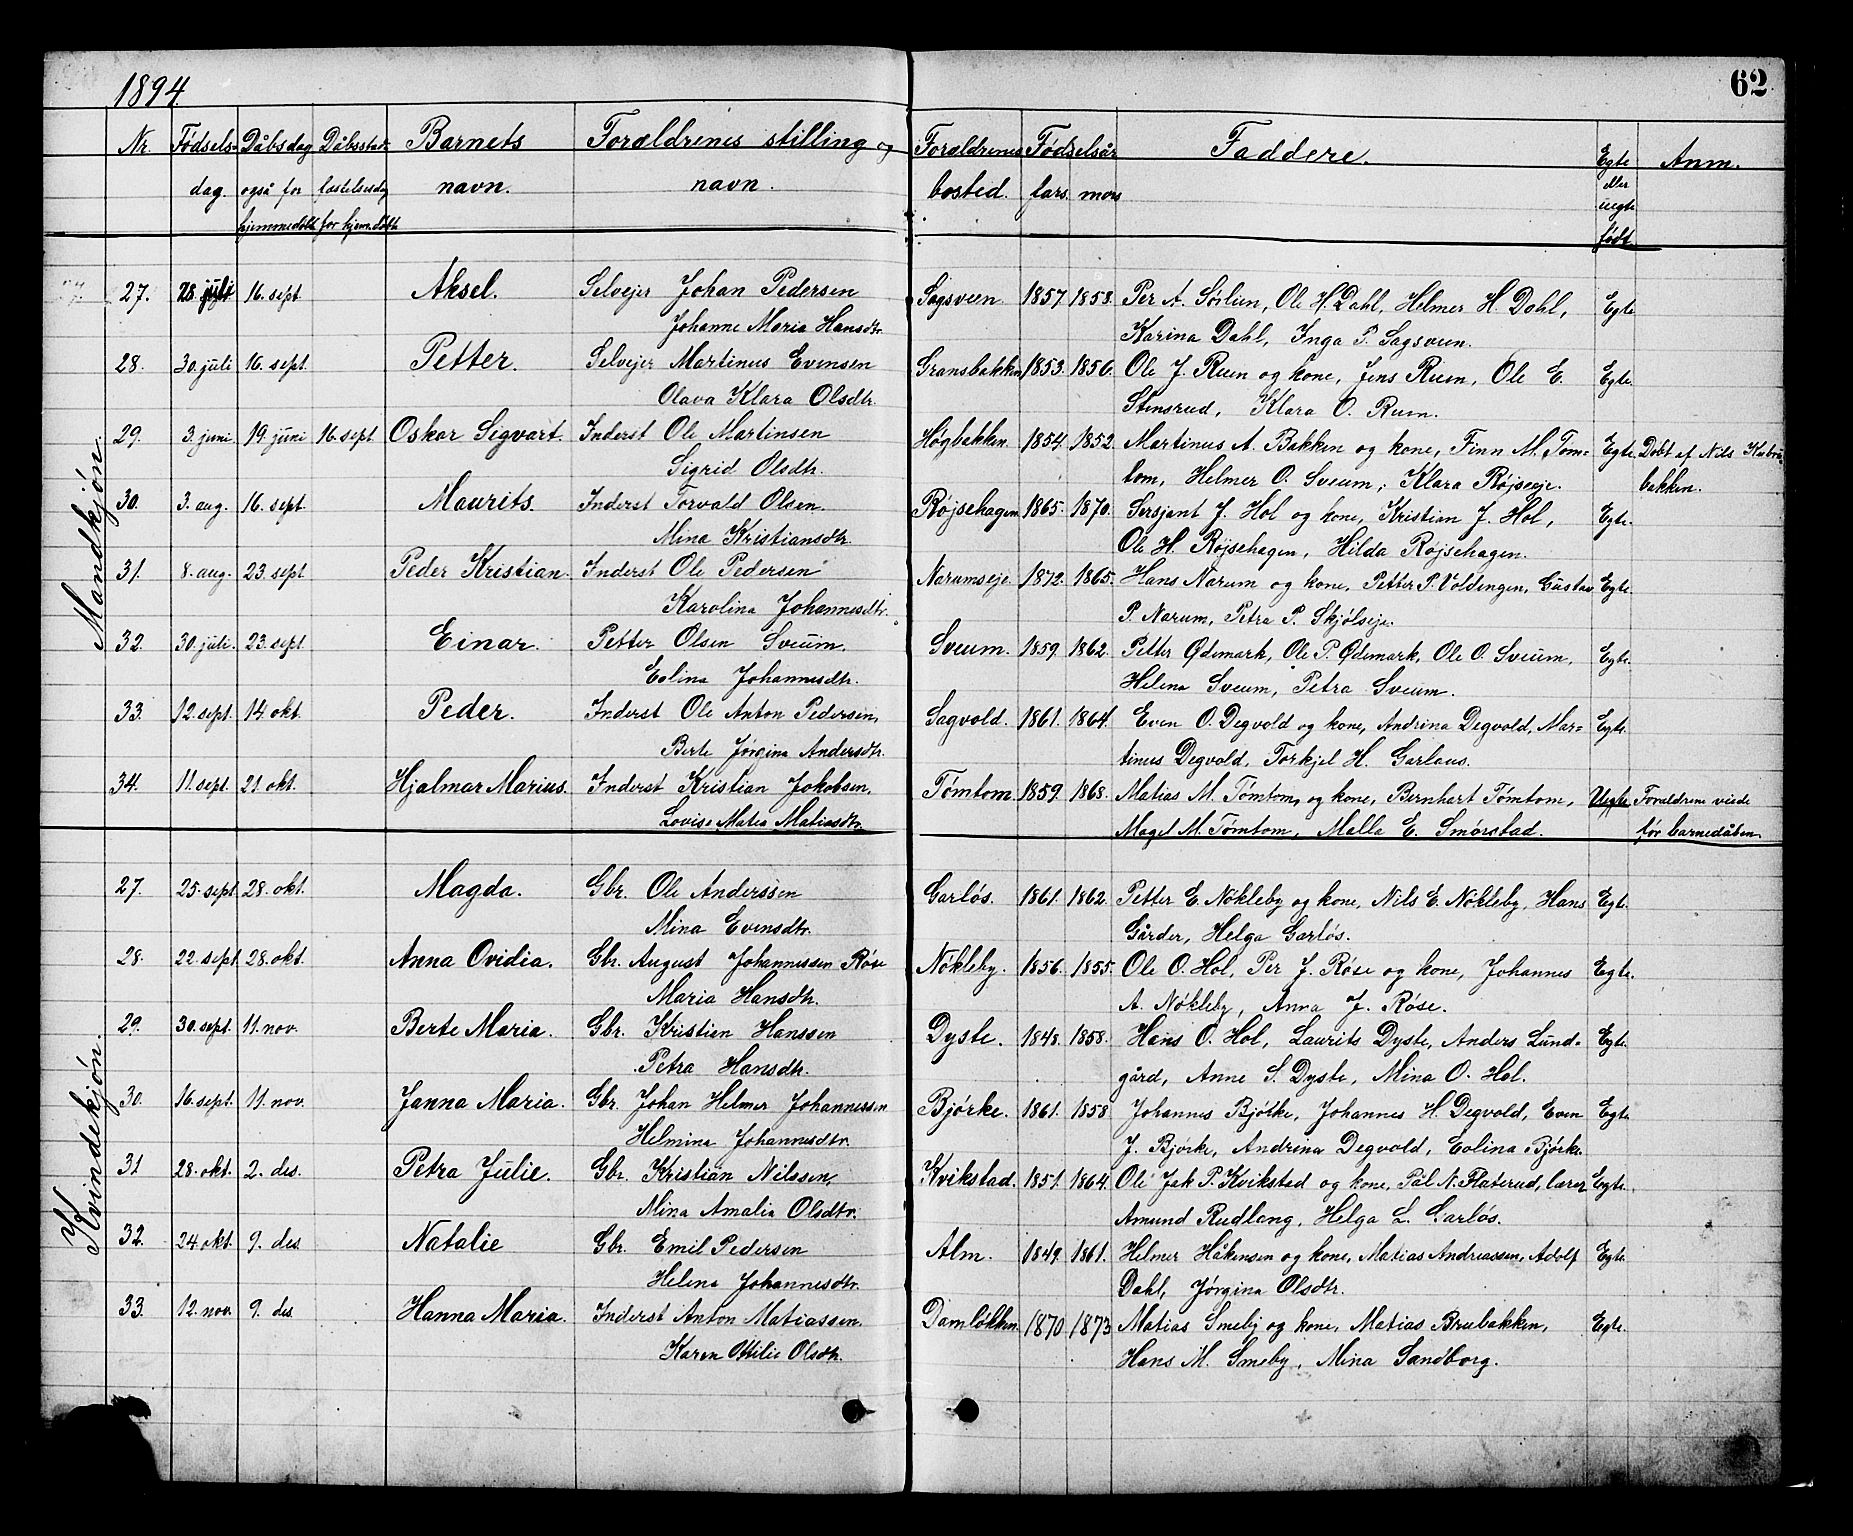 1894
62
Nr. Fødsels- Dåbsdag Dåbsstad- Barnets Forældrenes stilling og Forældrenes Fødselsår Faddere. Egte Anm.
dag. også for navn. navn. bosted. fars. mors eller
hjemmedøbt for hjem.døbte uegte
født
Mandkjøn.
27. 28. juli 16. sept Aksel. Selvejer Johan Pedersen Sagsveen 1857. 1858. Per A. Sørlien, Ole H. Dahl, Helmer H. Dahl, Egte
Johanne Maria Hansdtr. Karina Dahl, Inga P. Sagsveen.
28. 30. juli 16. sept. Petter. Selvejer Martinus Evensen Gransbakken 1853. 1856. Ole J. Ruen og kone, Jens Ruen, Ole E. Egte.
Olava Klara Olsdtr. Stensrud, Klara O. Ruen.
29. 3. juni. 19. juni 16. sept. Oskar Sigvart. Inderst Ole Martinsen Høgbakken. 1854. 1852. Martinus A. Bakken og kone, Finn M. Tøm- Egte. Døbt af Nils
Sigrid Olsdtr. tom, Helmer O. Sveum, Klara Røjseeje. bakken.
30. 3. aug. 16. sept. Maurits. Inderst Torvald Olsen. Røjsehagen. 1865. 1870. Sersjant J. Hol og kone, Kristian J. Hol, Egte.
Mina Kristiansdtr. Ole H. Røjsehagen, Hilda Røjsehagen.
31. 8. aug. 23. sept. Peder Kristian. Inderst Ole Pedersen Narumseje. 1872. 1865. Hans Narum og kone, Petter P. Voldengen, Gustav Egte.
Karolina Johannesdtr. P. Narum, Petra P. Skjølseje.
32. 30. juli. 23. sept. Einar. Petter Olsen Sveum. Sveum. 1859. 1862. Petter Ødemark, Ole P. Ødemark, Ole O. Sveum, Egte.
Eolina Johannesdtr. Helena Sveum, Petra Sveum.
33. 12. sept. 14. okt. Peder. Inderst Ole Anton Pedersen, Sagvold. 1861. 1864. Even O. Degvold og kone, Andrina Degvold, Mar- Egte.
Berte Jørgina Andersdtr. tinus Degvold, Torkjel H. Garlaus.
34. 11. sept. 21. okt. Hjalmar Marius. Inderst Kristian Jakobsen, Tømtom. 1859. 1868. Matias M. Tømtom, og kone, Bernhart Tømtom, Uegte Forældrene viede
Lovise Matea Matiasdtr. Magel M. Tømtom, Malla E. Smørstad. før barnedåben.
Kvindekjøn.
27. 25. sept. 28. okt. Magda. Gbr. Ole Anderssen Garløs. 1861. 1862. Petter E. Nøkleby og kone, Nils E. Nøkleby, Hans Egte.
Mina Evensdtr. Gårder, Helga Garløs.
28. 22. sept. 28. okt. Anna Ovidia. Gbr. August Johannessen Røse Nøkleby. 1856. 1855. Ole O. Hol, Per J. Røse og kone, Johannes Egte.
Maria Hansdtr. A. Nøkleby, Anna J. Røse.
29. 30. sept. 11. nov. Berte Maria. Gbr. Kristien Hanssen Dyste. 1848. 1858. Hans O. Hol, Laurits Dyste, Anders Lund- Egte.
Petra Hansdtr. gård, Anne S. Dyste, Mina O. Hol.
30. 16. sept. 11. nov. Janna Maria. Gbr. Johan Helmer Johannessen Bjørke. 1861. 1858 Johannes Bjørke, Johannes H. Degvold, Even Egte.
Helmina Johannesdtr. J. Bjørke, Andrina Degvold, Eolina Bjørke.
31 28. okt. 2. des. Petra Julie. Gbr. Kristian Nilssen, Kvikstad. 1851. 1864. Ole Jak P. Kvikstad og kone, Pål N. Flaterud, lærer Egte.
Mina Amalia Olsdtr. Amund Rudlang, Helga L. Garløs.
32. 24. okt. 9. des. Natalie Gbr. Emil Pedersen Alm. 1849. 1861. Helmer Håkensen og kone, Matias Andreassen, Adolf Egte.
Helena Johannesdtr. Dahl, Jørgina Olsdtr.
33. 12. nov. 9. des Hanna Maria. Inderst Anton Matiassen. Damløkken. 1870. 1873 Matias Smeby og kone, Matias Brubakken, Egte.
Karen Ottilie Olsdtr. Hans M. Smeby, Mina Sandborg.